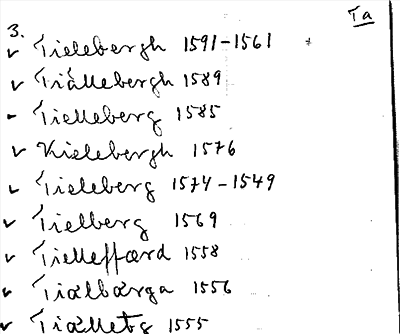 Ta
3.
✓ Tielebergh 1591-1561
✓ Tiällebergh 1589
- Tielleberg 1585
✓ Kielebergh 1576
✓ Tieleberg 1574-1549
✓ Tielberg 1569
✓ Tielleffærd 1558
✓ Tiälbärga 1556
✓ Tiälletg 1555